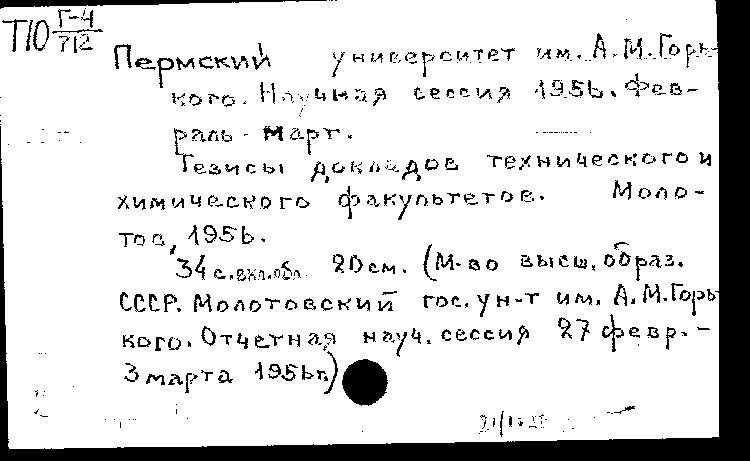 Т10 Г-4/712
Пермский университет им. А.М.Горь-
кого. Научная сессия 1956. Фев-
раль - март.
Тезисы докладов технического и
химического факультетов. Моло-
тов, 1956.
34 с. вкл. обл. 20 см. (М-во высш. образ.
СССР. Молотовский гос. ун-т им. А.М.Горь
кого. Отчетная науч. сессия 27 февр. -
3 марта 1956 г.)